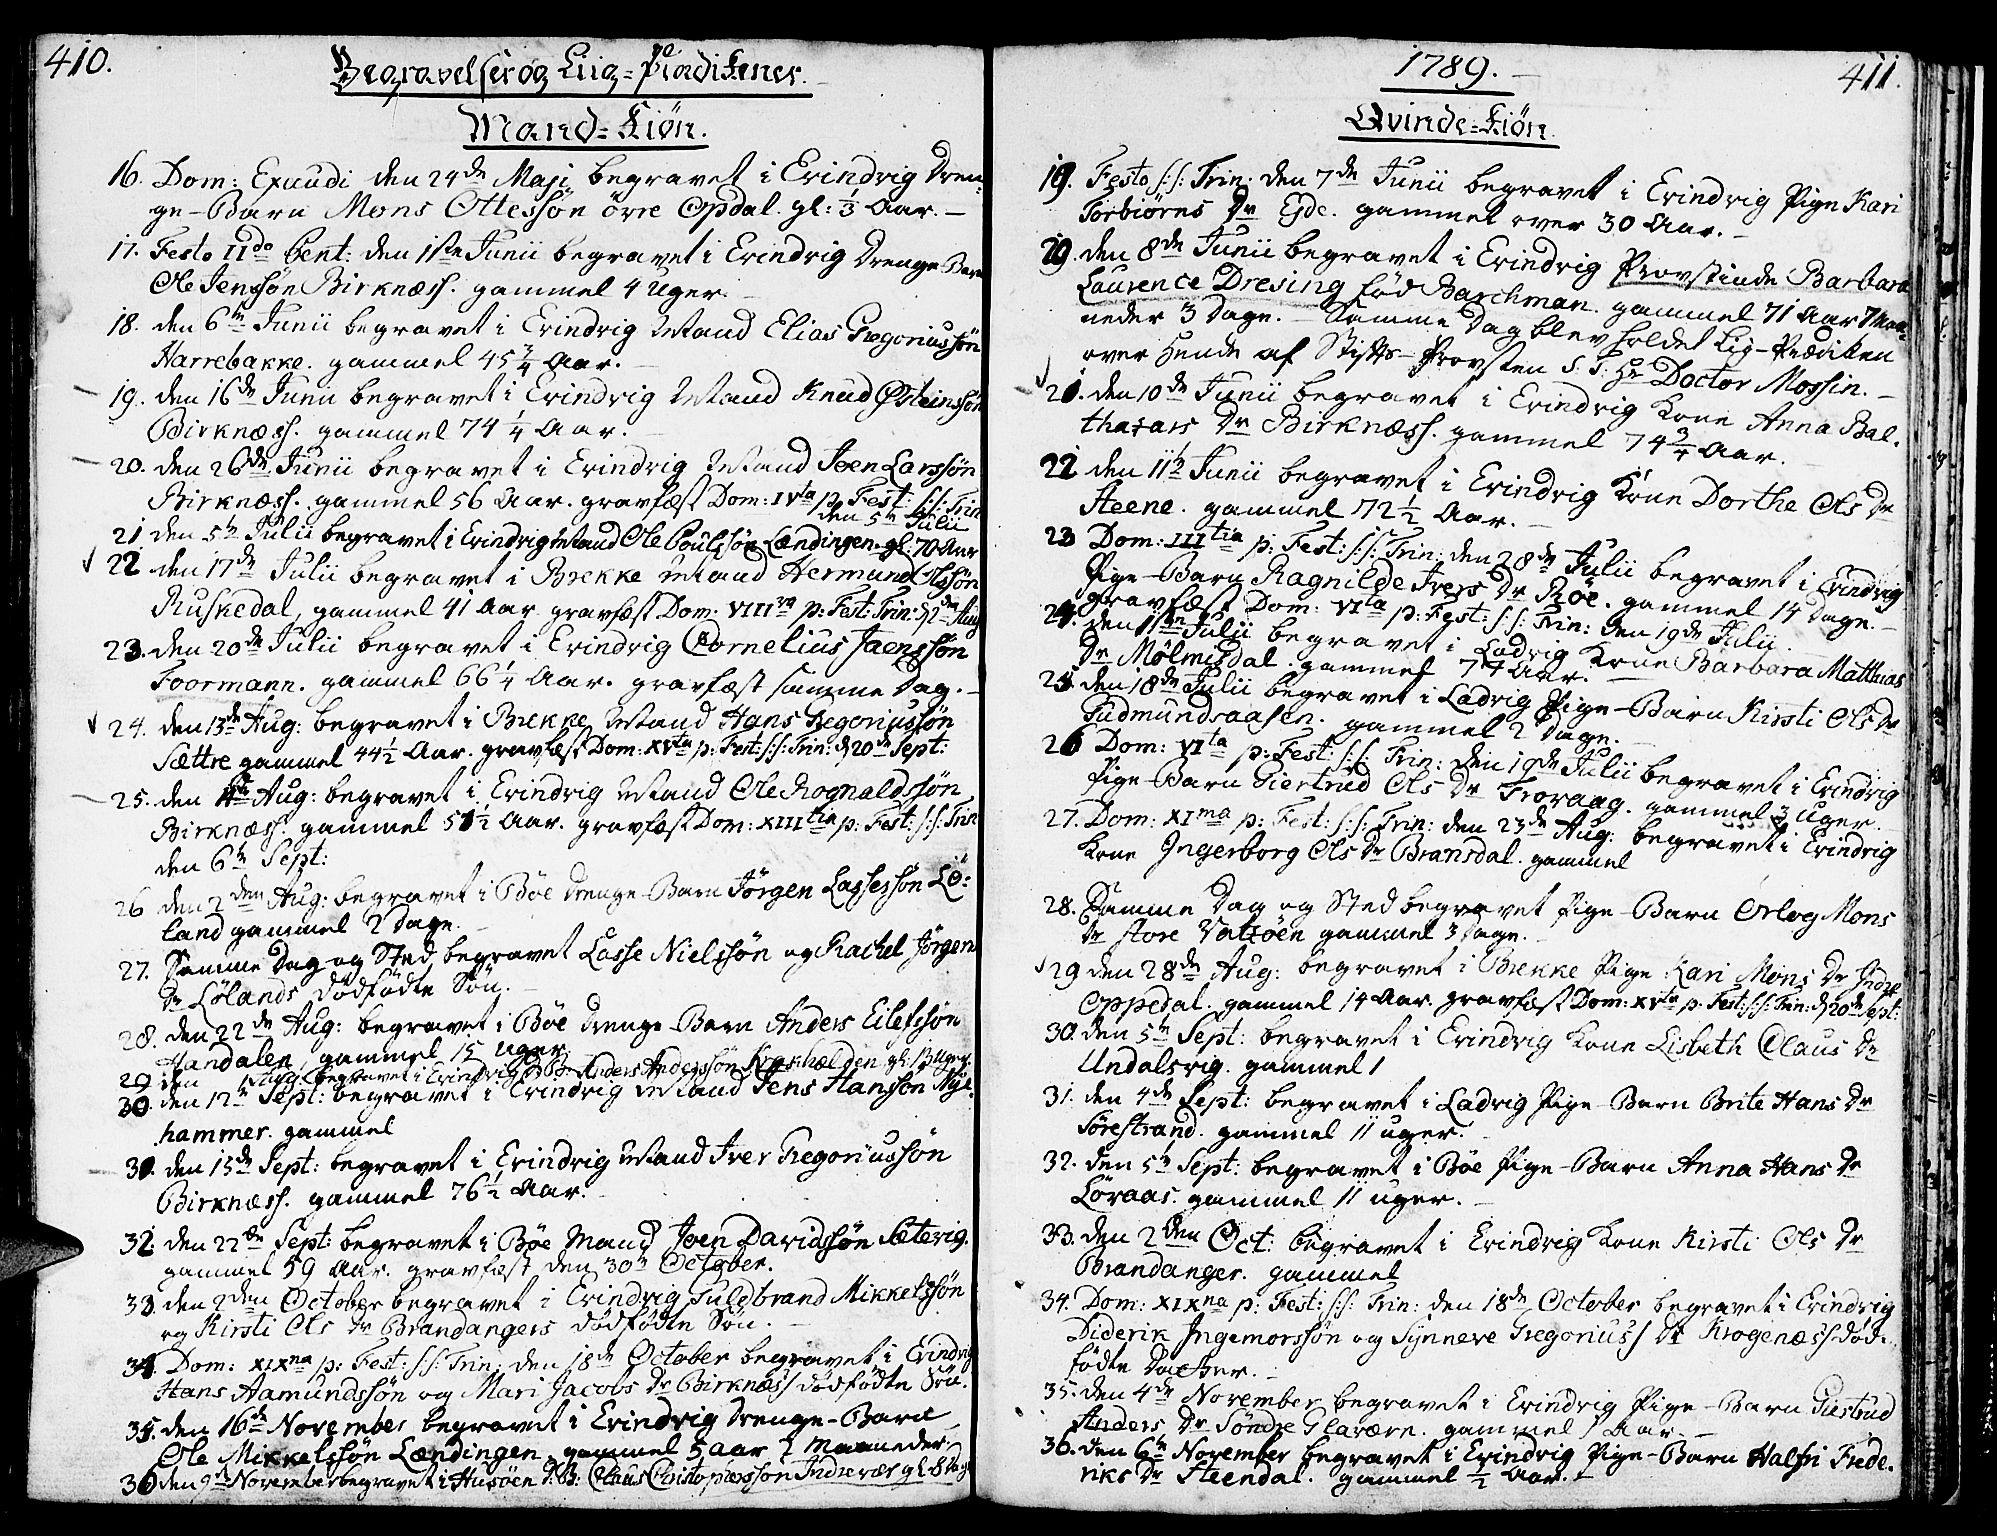 410.
Begravelser og Liig-Prædikener.
Mand-Kiøn.
16. Dom: Exaudi den 24de Maji begravet i Evindvig Dren-
ge-Barn Mons Ottessøn övre Opdal. gl: 1/3 Aar.
17. Festo IIdo Pent: den 1ste Junii begravet i Evindvig Drenge Barn
Ole Jenssøn Birknæss. gammel 4 Uger.
18. den 6te Junii begravet i Evindvig Mand Elias Gregoriussøn
Harrebakke. gammel 45 3/4 Aar.
19. den 16de Junii begravet i Evindvig Mand Knud Østeinssøn
Birknæss. gammel 74 1/4 Aar.
20. den 26de Junii begravet i Evindvig Mand Joen Larssøn
Birknæss. gammel 56 Aar. gravfæst Dom: IVta p. Fest: s:s: Trin
den 5te Julii
21 den 5te Julii begravet i Evindvig Mand Ole Poulssøn Lændingen. gl: 70 Aar
22 den 17de Julii begravet i Brekke Mand Hermund Olssøn
Ruskedal, gammel 41 Aar gravfæst Dom: VIIIva p: Fest: Trin: d 2den Aug
23. den 20de Julii begravet i Evindvig Cornelius Jaenssøn
Foormann. gammel 66 1/4 Aar. gravfæst samme Dag.
24. den 13de Aug: begravet i Brekke Mand Hans Gregoriussøn
Sættre gammel 44 1/2 Aar. gravfæst Dom: XVta p: Fest: s:s: Trin: d 20de Sept:
25. den Aug: begravet i Evindvig Mand Ole Rognaldssøn
Birknæss. gammel 51 1/2 Aar. gravfæst Dom: XIIItia p: Fest: s:s: Trin
den 6te Sept:
26 den 2den Aug: begravet i Böe Drenge-Barn Jörgen Lassessøn Lö-
land gammel 2 Dage.
27. Samme Dag og Sted begravet Lasse Nielssøn og Rachel Jörgens
Dr Lölands dödfödte Sön.
28. den 22de Aug: begravet i Böe Drenge-Barn Anders Eilefssøn
Handalen, gammel 15 Uger
29 den Aug: begravet i Evindvig D: B: Anders Anderssøn Krakhælden. gl: 13 Uger.
30. den 12te Sept: begravet i Evindvig Mand Jens Hanssøn Mÿe-
hammer. gammel
31. den 15de Sept: begravet i Evindvig Mand Iver Gregoriussøn
Birknæss. gammel 76 1/2 Aar.
32. den 22de Sept: begravet i Böe Mand Joen Davidssøn Sæterig.
gammel 59 Aar. gravfæst den 30te October.
33 den 2den October begravet i Evindvig Guldbrand Mikkelssøn
og Kirsti Ols Dr Brandangers dödfödte Sön.
34. Dom: XIXna p: Fest: s:s: Trin: den 18de October begravet i Evindvig
Hans Aamundssøn og Mari Jacobs Dr Birknæss dödfödte Sön.
35. den 16de November begravet i Evindvig Drenge-Barn
Ole Mikkelssøn Lændingen gammel 5 aar 2 Maaneder
36 den 9de November begravet i Husöen D: B: Claus Christophersson Indrevær gl: 8 Dage
1789.
411.
Qvinde-Kiøn.
19. Festo s:s: Trin: den 7de Junii begravet i Evindvig Pige Kari
Torbiörns Dr Eide. gammel over 30 Aar.
20. den 8de Junii begravet i Evindvig Provstinde Barbara
Laurence Dresing föd Barchman. gammel 71 Aar 7 Maa-
neder 3 Dage. Samme Dag blev holdet Lig-Prædiken
over Hende af Stifts-Provsten S: T: Hr Doctor Mossin.
21. den 10de Junii begravet i Evindvig Kone Anna Bal-
thazars Dr Birknæss. gammel 74 3/4 Aar.
22 den 11te Junii begravet i Evindvig Kone Dorthe Ols Dr
Steene. gammel 72 1/2 Aar.
23 Dom: IIItia p: Fest: s:s: Trin: den 28de Julii begravet i Evindvig
Pige-Barn Ragnilde Ivers Dr Röe. gammel 14 Dage.
gravfæst Dom: VIta p: Fest: s:s: Trin: den 19de Julii
24. den Julii begravet i Ladvig Kone Barbara Matthias
Dr Mølmisdal. gammel 74 Aar.
25. den 18de Julii begravet i Ladvig Pige-Barn Kirsti Ols Dr
Gudmundsaasen. gammel 2 Dage.
26 Dom: VIta p: Fest: s:s: Trin: den 19de Julii begravet i Evindvig
Pige-Barn Giertrud Ols Dr Froraag. gammel 3 Uger.
27. Dom: XIma p: Fest: s:s: Trin: den 23de Aug: begravet i Evindvig
Kone Ingerborg Ols Dr Bransdal. gammel
28. Samme Dag og Sted begravet Pige-Barn Orlog Mons
Dr store Vatsöen gammel 3 Dage.
29 den 28de Aug: begravet i Brekke Pige Kari Mons Dr Indre
Oppedal. gammel 14 Aar. gravfæst Dom: XVta p: Fest: s:s: Trin: d 20de Sept:
30. den 5te Sept: begravet i Evindvig Kone Lisbeth Claus Dr
Undalsvig. gammel
31. den 4de Sept: begravet i Ladvig Pige-Barn Brite Hans Dr
Sörestrand. gammel 11 uger.
32. den 5te Sept: begravet i Böe Pige-Barn Anna Hans Dr
Löraas. gammel 11 uger.
33. den 2den Oct: begravet i Evindvig Kone Kirsti Ols Dr
Brandanger. gammel
34. Dom: XIXna p: Fest: s:s: Trin: den 18de October begravet i Evindvig
Diderik Ingemorssøn og Synneve Gregorius Dr Krogenæss död-
födte Datter.
35. den 4de November begravet i Evindvig Pige-Barn Giertrud
Anders Dr Söndre Glavære. gammel 1 Aar.
36. den 6te November begravet i Evindvig Pige-Barn Halfri Frede-
riks Dr Steendal. gammel 1/2 Aar.